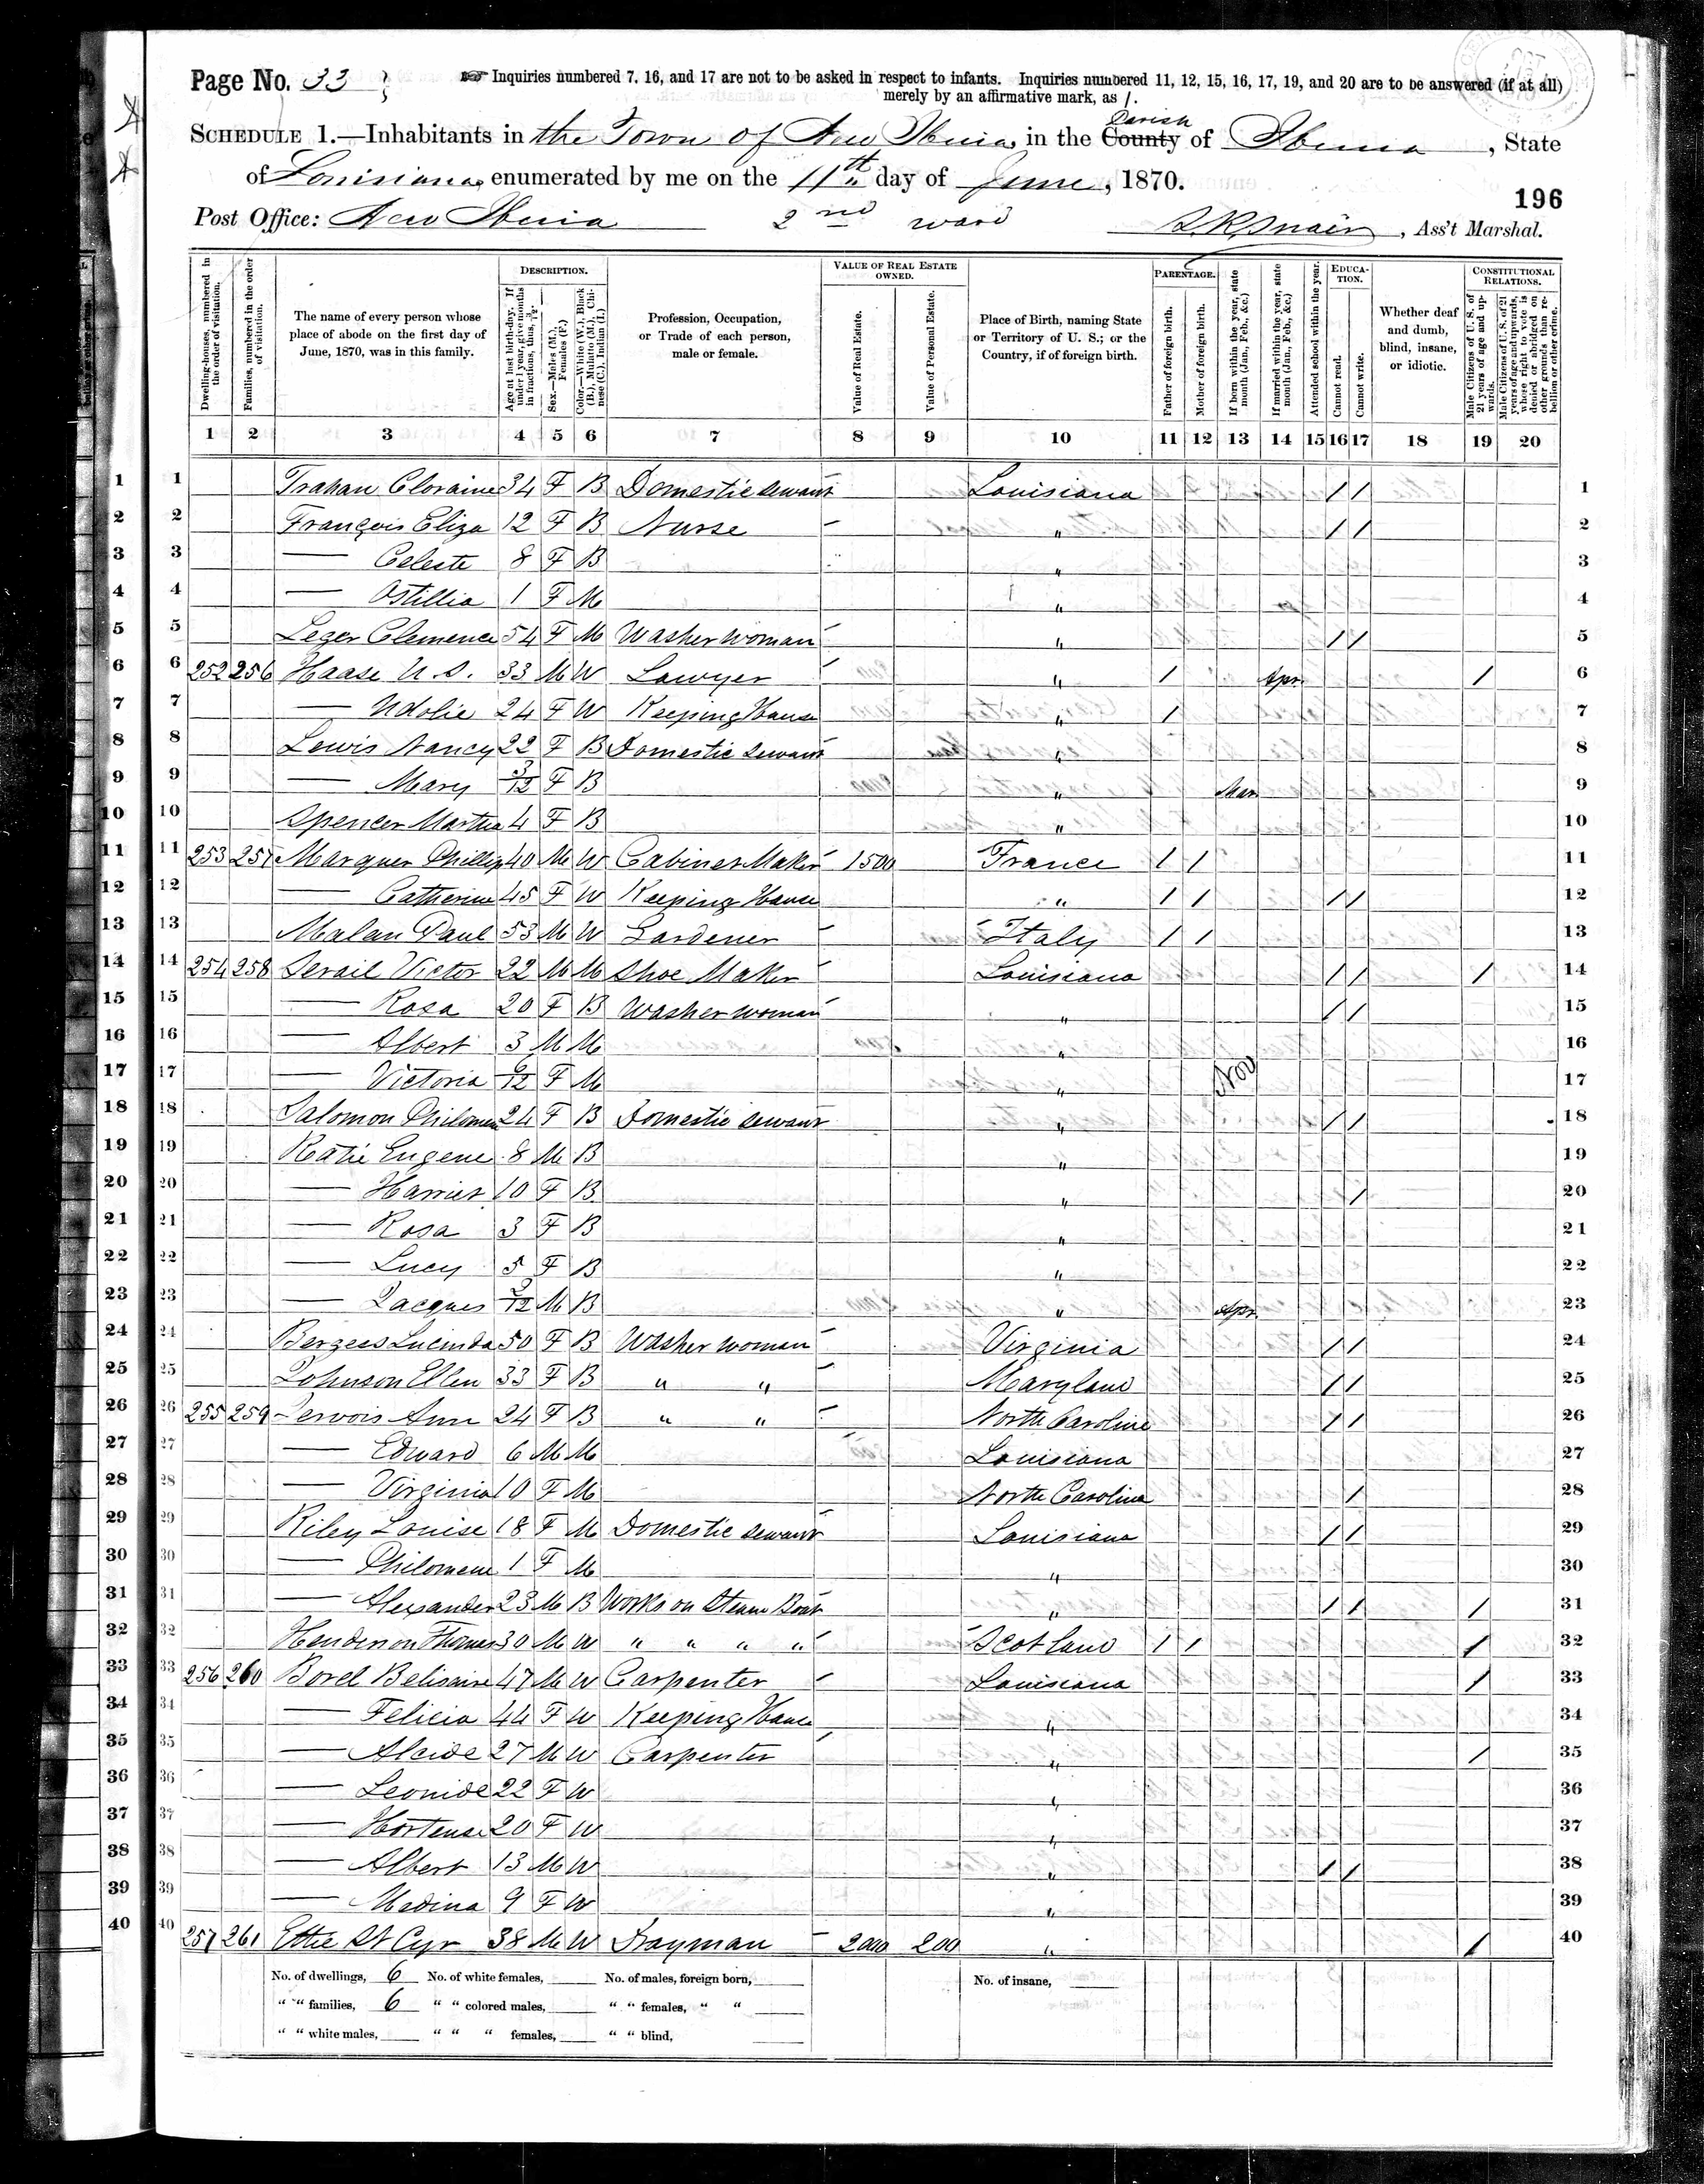 Page No. 33
Inquiries numbered 7, 16, and 17 are not to be asked in respect to infants. Inquiries numbered 11, 12, 15, 16, 17, 19, and 20 are to be answered (if at all)
merely by an affirmative mark, as /.
SCHEDULE 1.—Inhabitants in the Town of New Iberia, in the County Parish of Iberia, State
of Louisiana, enumerated by me on the 11th day of June, 1870.
196
Post Office: New Iberia 2nd ward , Ass't Marshal.
Dwelling-houses, numbered in the order of visitation.
Families, numbered in the order of visitation.
The name of every person whose place of abode on the first day of June, 1870, was in this family.
DESCRIPTION.
Age at last birth-day. If under 1 year, give months in fractions, thus, 3/12.
Sex.—Males (M.), Females (F.)
Color.—White (W.), Black (B.), Mulatto (M.), Chinese (C.), Indian (I.)
Profession, Occupation, or Trade of each person, male or female.
VALUE OF REAL ESTATE OWNED.
Value of Real Estate.
Value of Personal Estate.
Place of Birth, naming State or Territory of U. S.; or the Country, if of foreign birth.
PARENTAGE.
Father of foreign birth.
Mother of foreign birth.
If born within the year, state month (Jan., Feb., &c.)
If married within the year, state month (Jan., Feb., &c.)
Attended school within the year.
EDUCATION.
Cannot read.
Cannot write.
Whether deaf and dumb, blind, insane, or idiotic.
CONSTITUTIONAL RELATIONS.
Male Citizens of U. S. of 21 years of age and upwards.
Male Citizens of U. S. of 21 years of age and upwards, whose right to vote is denied or abridged on other grounds than rebellion or other crime.
1 2 3 4 5 6 7 8 9 10 11 12 13 14 15 16 17 18 19 20
1 Trahan Cloraine 34 F B Domestic servant Louisiana / / 1
2 François Eliza 12 F B Nurse " / / 2
3 — Celeste 8 F B " 3
4 — Ostillia 1 F M " 4
5 Leger Clemence 54 F M Washer woman " / / 5
6 252 256 Haase 33 M W Lawyer " / Apr / 6
7 — Udolie 24 F W Keeping House " / 7
8 Lewis Nancy 22 F B Domestic servant " 8
9 — Mary 3/12 F B " Mar 9
10 Spencer Martha 4 F B " 10
11 253 257 Marquer Phillip 40 M W Cabinet Maker 1500 France / / 11
12 — Catherine 45 F W Keeping House " / / / / 12
13 Malan Paul 53 M W Gardener Italy / / 13
14 254 258 Serail Victor 22 M M Shoe Maker Louisiana / / / 14
15 — Rosa 20 F B Washer woman " / / 15
16 — Albert 3 M M " 16
17 — Victoria 6/12 F M " Nov 17
18 Salomon Philomene 24 F B Domestic servant " / / 18
19 Katie Eugene 8 M B " 19
20 — Harriet 10 F B " / 20
21 — Rosa 3 F B " 21
22 — Lucy 5 F B " 22
23 — Jacques 2/12 M B " Apr 23
24 Bergess Lucinda 50 F B Washer woman Virginia / / 24
25 Johnson Ellen 33 F B " " Maryland / / 25
26 255 259 Jervois Ann 24 F B " " North Carolina / / 26
27 — Edward 6 M M Louisiana 27
28 — Virginia 10 F M North Carolina / 28
29 Riley Louise 18 F M Domestic servant Louisiana / / 29
30 — Philomene 1 F M " 30
31 — Alexander 23 M B Works on Steam Boat " / / / 31
32 Henderson Thomas 30 M W " " " " Scotland / / / 32
33 256 260 Borel Belisaire 47 M W Carpenter Louisiana / 33
34 — Felicia 44 F W Keeping House " 34
35 — Alcide 27 M W Carpenter " / 35
36 — Leonide 22 F W " 36
37 — Hortense 20 F W " 37
38 — Albert 13 M W " / / 38
39 — Medina 9 F W " 39
40 257 261 Ettie St Cyr 38 M W Drayman 2000 200 " / 40
No. of dwellings, 6 No. of white females, No. of males, foreign born, No. of insane,
" " families, 6 " " colored males, " " females, " "
" " white males, " " " females, " " blind,